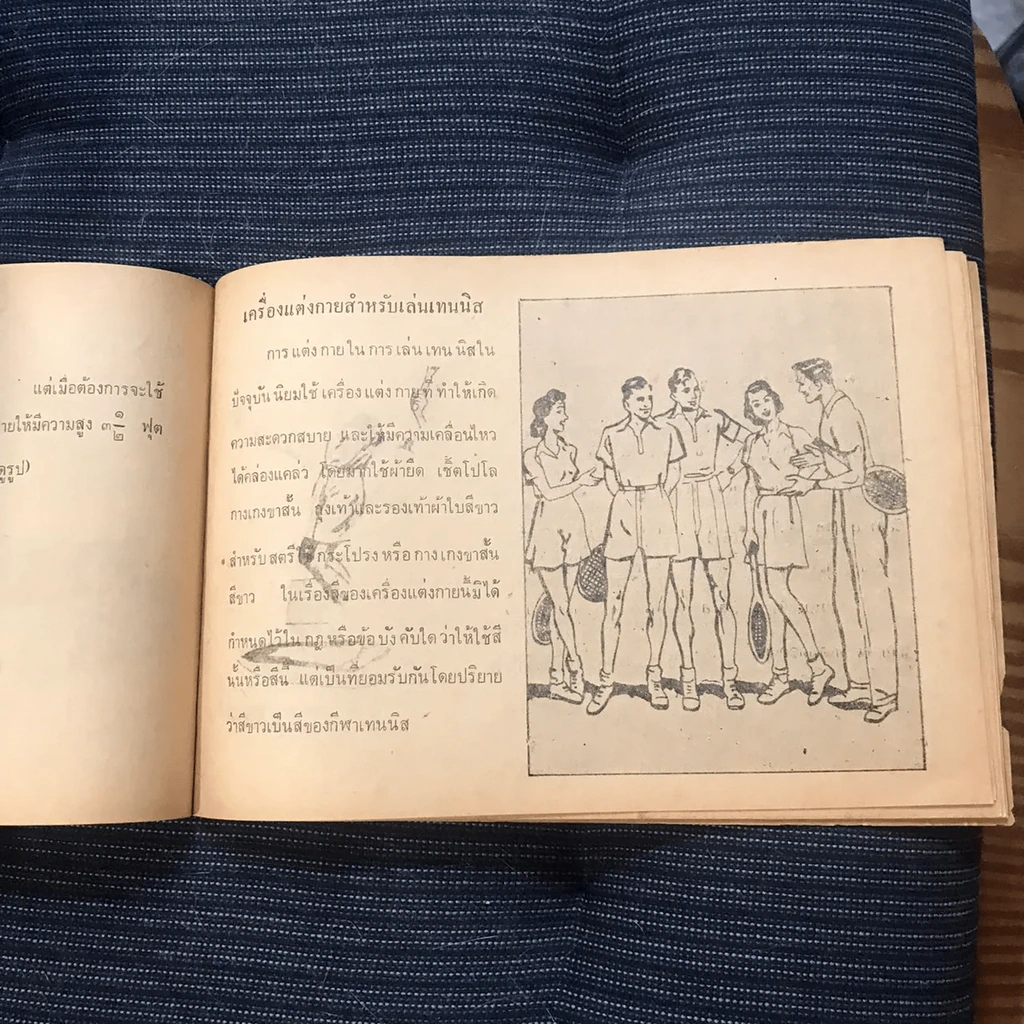 แต่เมื่อต้องการจะใช้
ายให้มีความสูง ๓ ๑/๒ ฟุต
ดูรูป)
เครื่องแต่งกายสำหรับเล่นเทนนิส
การแต่งกายในการเล่นเทนนิสใน
ปัจจุบันนิยมใช้เครื่องแต่งกายที่ทำให้เกิด
ความสะดวกสบาย และให้มีความเคลื่อนไหว
ได้คล่องแคล่ว โดยมากใช้ผ้ายืด เชิ๊ตโปโล
กางเกงขาสั้น ถุงเท้าและรองเท้าผ้าใบสีขาว
สำหรับสตรีใช้กระโปรงหรือกางเกงขาสั้น
สีขาว ในเรื่องสีของเครื่องแต่งกายนี้มิได้
กำหนดไว้ในกฎหรือข้อบังคับใดว่าให้ใช้สี
นั้นหรือสีนี้ แต่เป็นที่ยอมรับกันโดยปริยาย
ว่าสีขาวเป็นสีของกีฬาเทนนิส